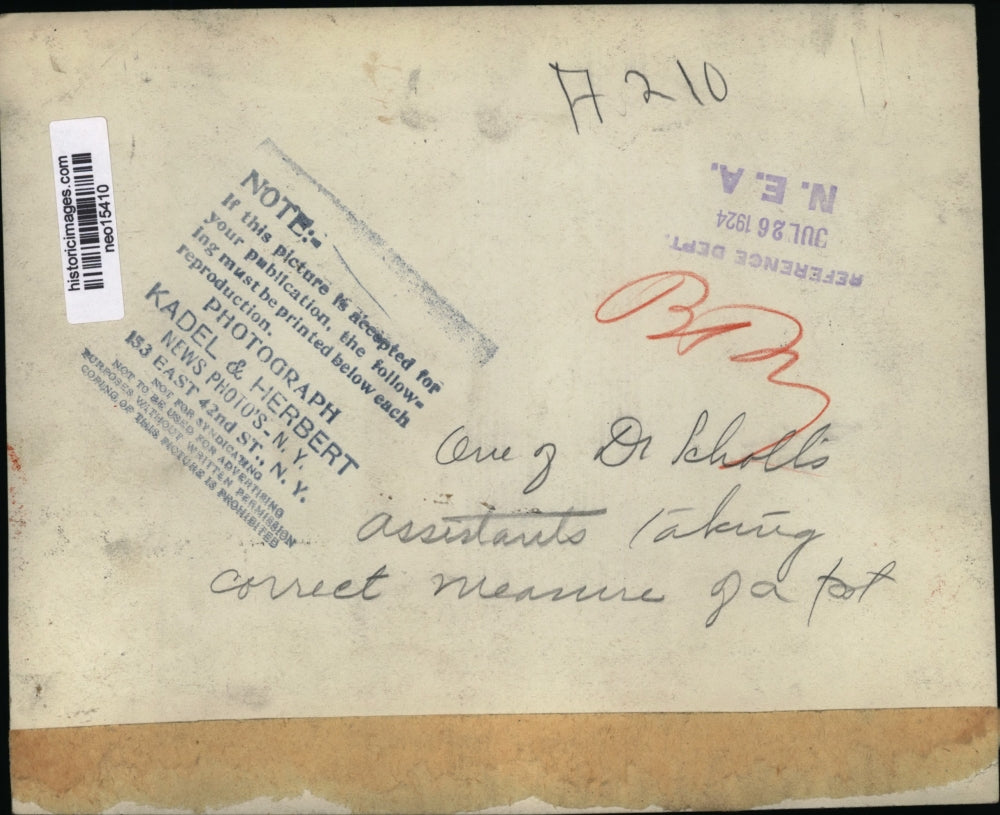 A 210
historicimages.com
neo15410
N. E. A.
JUL 26 1924
REFERENCE DEPT.
NOTE:-
If this picture is accepted for
your publication, the follow-
ing must be printed below each
reproduction.
PHOTOGRAPH
KADEL & HERBERT
NEWS PHOTO'S - N. Y.
153 EAST 42nd ST., N. Y.
NOT FOR SYNDICATING
NOT TO BE USED FOR ADVERTISING
PURPOSES WITHOUT WRITTEN PERMISSION
COPING OF THIS PICTURE IS PROHIBITED
One of Dr Scholl's
assistants taking
correct measure of a foot